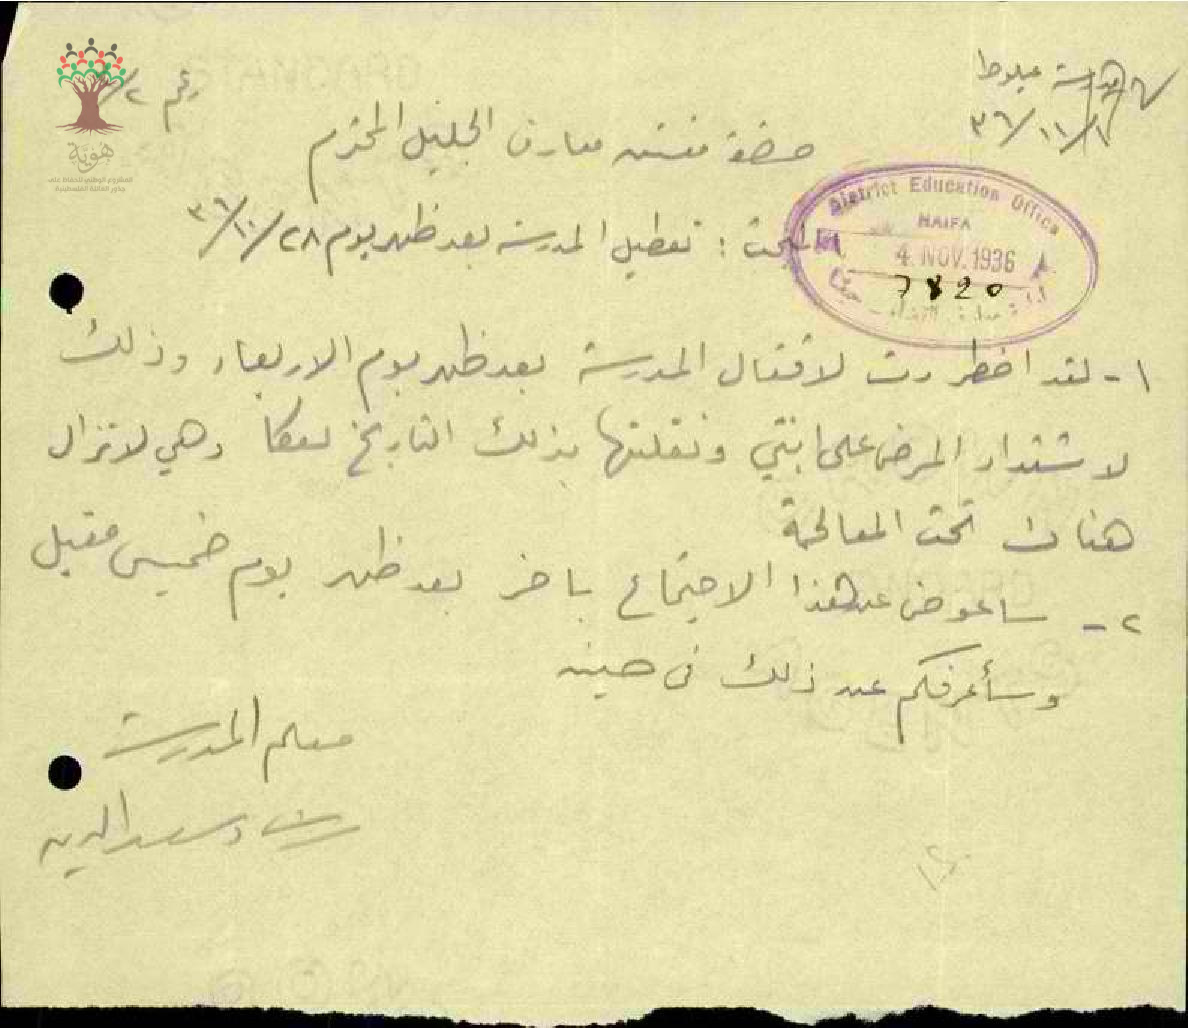 هوية
المشروع الوطني للحفاظ على
جذور العائلة الفلسطينية
مدرسة عيلوط
٣٦/١١/١
رقم
حضرة مفتش معارف الجليل المحترم
District Education Office
HAIFA
4. NOV. 1936
7820
البحث : تعطيل المدرسة بعد ظهر يوم ٣٦/١٠/٢٨
١- لقد اضطررت لاقفال المدرسة بعد ظهر يوم الاربعاء وذلك
لاشتداد المرض على ابنتي ونقلتها بذلك التاريخ لعكا وهي لا تزال
هناك تحت المعالجة
٢- ساعوض عن هذا الاجتماع بآخر بعد ظهر يوم خميس مقبل
وسأعرفكم عن ذلك في حينه
معلم المدرسة
رشاد سعد الدين